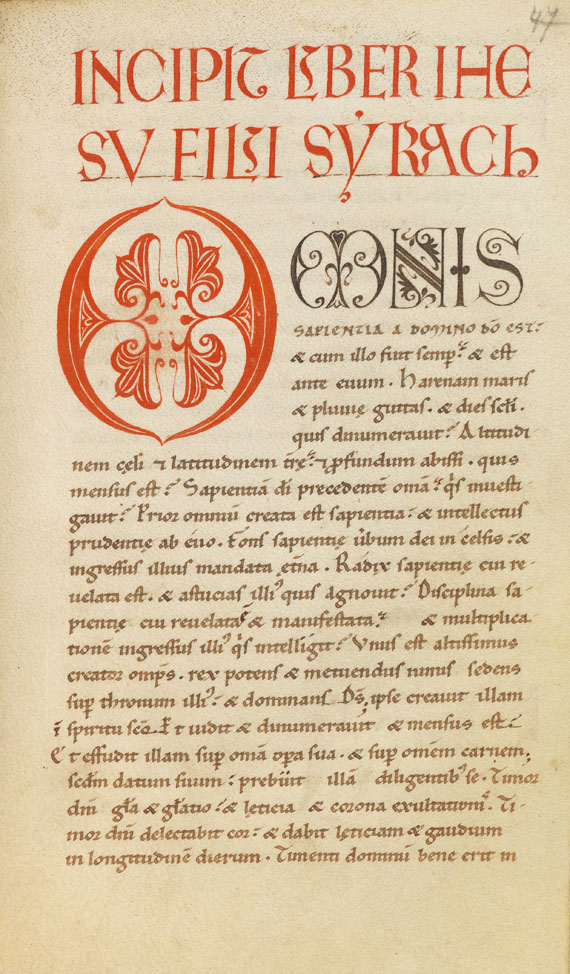 47
INCIPIT LIBER IHE
SV FILII SYRACh
OMNIS
SAPIENTIA A DOMINO DŌ EST:
& cum illo fuit semp̄. & est
ante euum. Harenam maris
& pluuię guttas. & dies sc̄li.
quis dinumerauit? Altitudi
nem cęli & latitudinem trę̄. & ꝓfundum abissi. quis
mensus est? Sapientiā dī precedentē om̄a. q̇s inuesti
gauit? Prior omniū creata est sapientia. & intellectus
prudentię ab ęuo. Fons sapientię ūbum dei in celsis. &
ingressus illius mandata et̄na. Radix sapientię cui re-
uelata est. & astucias illi⁹ quis agnouit? Disciplina sa-
pientię cui reuelata & manifestata. & multiplica
tionē ingressus illi⁹ q̇s intelligit? Vnus est altissimus
creator omp̄s. rex potens & metuendus nimis sedens
sup̄ thronum illi⁹. & dominans D̄s. ipse creauit illam
ī spiritu sc̄o. Et uidit & dinumerauit & mensus est.
Et effudit illam sup̄ om̄a oꝑa sua. & sup̄ omēm carnem;
sc̄dm datum suum. prebuit illā diligentib⁹ se. Timor
dn̄i gl̄a & gl̄atio. & lęticia & corona exultation̄. Ti-
mor dn̄i delectabit cor. & dabit lęticiam & gaudium
in longitudinē dierum. Timenti dominū bene erit in